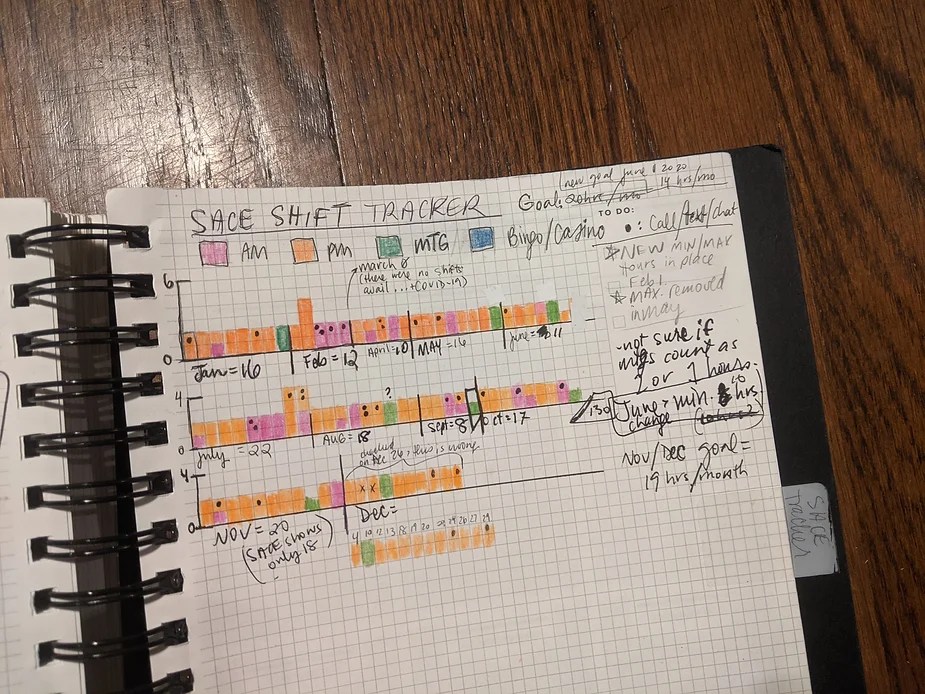 new goal June 1 2020
SACE SHIFT TRACKER
Goal: 20hrs/mo 14 hrs/mo
TO DO:
AM
PM
MTG
Bingo/Casino
•: Call/text/chat
★NEW MIN/MAX
Hours in place
Feb 1
★MAX. removed
in May
march 8
(there were no shifts
avail...+COVID-19)
6
0
Jan=16
Feb=12
April=10
MAY=16
June=11
-not sure if
mtgs count as
or 1 hours.
4
?
0
July=22
AUG=18
Sept=8
Oct=17
130
June> min. hrs
change
checked
on Dec 26, this is wrong
4
x x
0
NOV=20
(SACE shows
only 18
Dec=
Nov/Dec goal=
19 hrs/month
SACE
Tracker